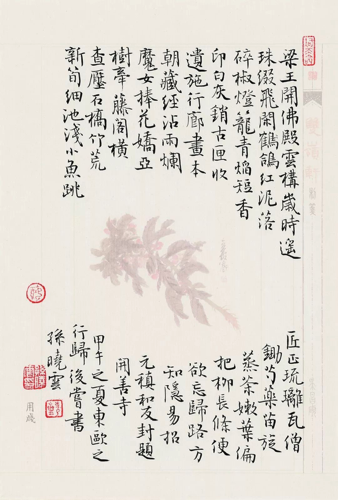 梁王開佛殿雲構歲時遥
珠綴飛閑鶴鴿红泥落
碎椒燈龍青焰短香
印白灰銷古匣收
遺施行廊畫本
朝藏經沾雨爛
魔女捧花嬌亞
樹牽藤閣橫
查壓石橋竹荒
新筍细池淺小魚跳
匠正琉璃瓦僧
鋤芍藥苗旋
蒸茶嫩葉偏
把柳長條便
欲忘歸路方
知隱易招
元稹和友封題
開善寺
甲午之夏東歐之
行歸後嘗書
孫曉雲
用箋